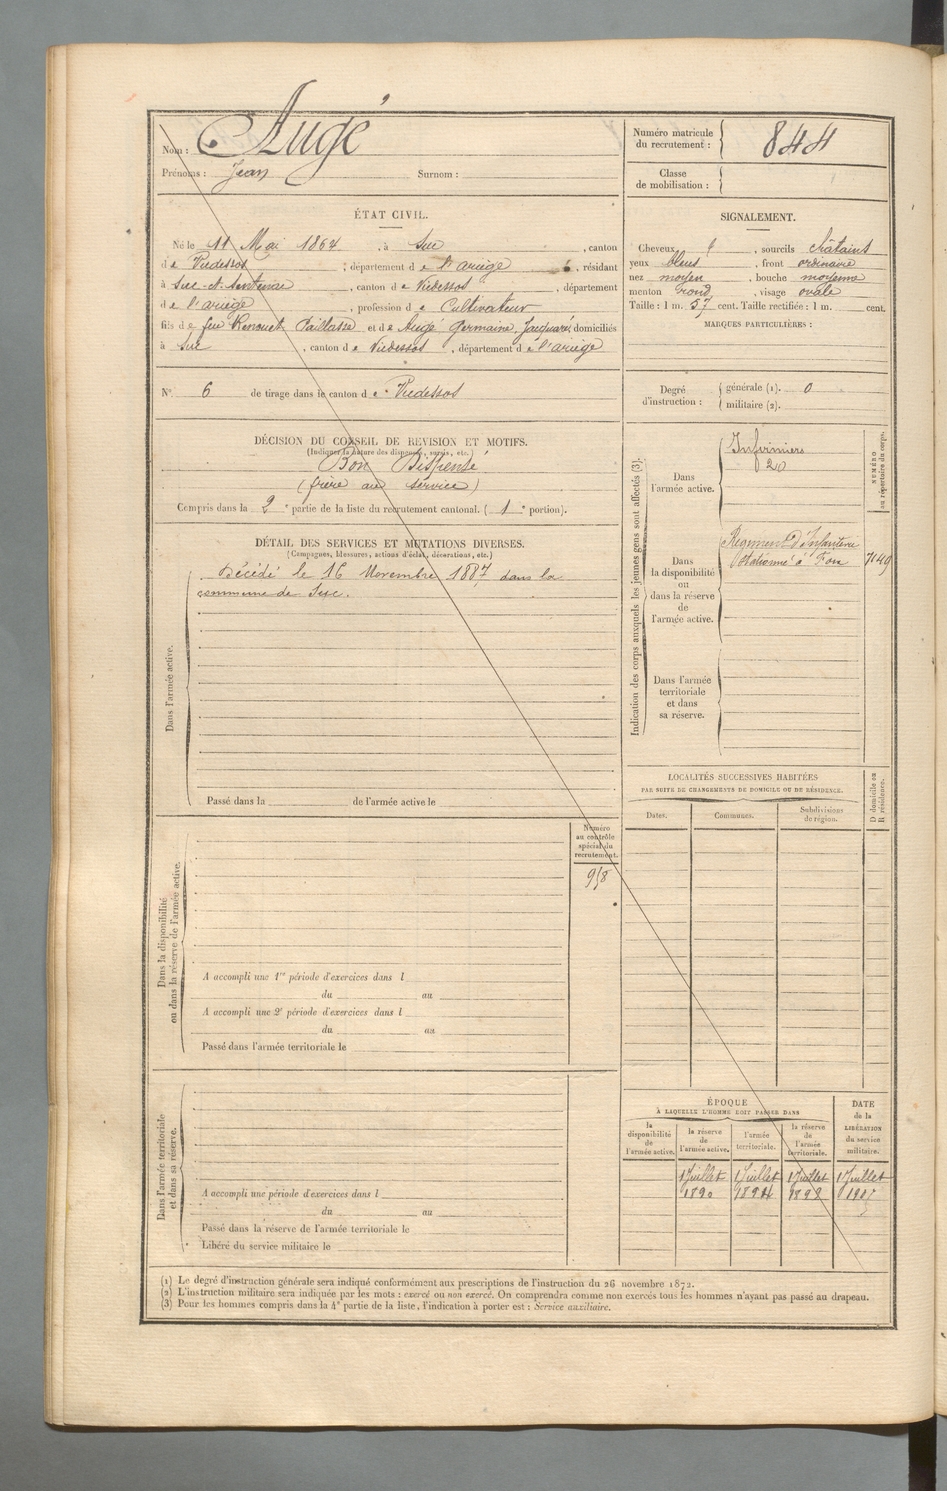 Nom : Augé
Prénoms : Jean Surnom :
Numéro matricule du recrutement : 844
Classe de mobilisation :
ÉTAT CIVIL.
Né le 11 Mai 1864, à Suc, canton
de Vicdessos, département de l'ariège, résidant
à Suc-et-Sentenac, canton de Vicdessos, département
de l'ariège, profession de Cultivateur
fils de feu et de Augé Germaine, domiciliés
à Suc, canton de Vicdessos, département de l'ariège
N° 6 de tirage dans le canton de Vicdessos
SIGNALEMENT.
Cheveux, sourcils châtains
yeux bleus, front ordinaire
nez moyen, bouche moyenne
menton rond, visage ovale
Taille : 1 m. 57 cent. Taille rectifiée : 1 m. cent.
MARQUES PARTICULIÈRES :
Degré d'instruction : générale (1). 0
militaire (2).
DÉCISION DU CONSEIL DE REVISION ET MOTIFS.
(Indiquer la nature des dispenses, sursis, etc.)
Bon Dispensé
(frère au service)
Compris dans la 2e partie de la liste du recrutement cantonal. (1e portion).
DÉTAIL DES SERVICES ET MUTATIONS DIVERSES.
(Campagnes, blessures, actions d'éclat, décorations, etc.)
Dans l'armée active.
Décédé le 16 Novembre 1887 dans la
commune de Suc.
Passé dans la de l'armée active le
Indication des corps auxquels les jeunes gens sont affectés (3).
NUMÉRO au répertoire du corps.
Dans l'armée active.
Infirmiers
20
Dans la disponibilité ou dans la réserve de l'armée active.
Régiment d'Infanterie
Stationné à Foix
Dans l'armée territoriale et dans sa réserve.
LOCALITÉS SUCCESSIVES HABITÉES
PAR SUITE DE CHANGEMENTS DE DOMICILE OU DE RÉSIDENCE.
Dates.
Communes.
Subdivisions de région.
D domicile ou R résidence.
Dans la disponibilité ou dans la réserve de l'armée active.
Numéro au contrôle spécial du recrutement.
A accompli une 1re période d'exercices dans l
du au
A accompli une 2e période d'exercices dans l
du au
Passé dans l'armée territoriale le
Dans l'armée territoriale et dans sa réserve.
A accompli une période d'exercices dans l
du au
Passé dans la réserve de l'armée territoriale le
Libéré du service militaire le
ÉPOQUE
À LAQUELLE L'HOMME DOIT PASSER DANS
la disponibilité de l'armée active.
la réserve de l'armée active.
l'armée territoriale.
la réserve de l'armée territoriale.
DATE de la LIBÉRATION du service militaire.
1 Juillet 1890
1 Juillet
1 Juillet
1 Juillet
(1) Le degré d'instruction générale sera indiqué conformément aux prescriptions de l'instruction du 26 novembre 1872.
(2) L'instruction militaire sera indiquée par les mots : exercé ou non exercé. On comprendra comme non exercés tous les hommes n'ayant pas passé au drapeau.
(3) Pour les hommes compris dans la 4e partie de la liste, l'indication à porter est : Service auxiliaire.